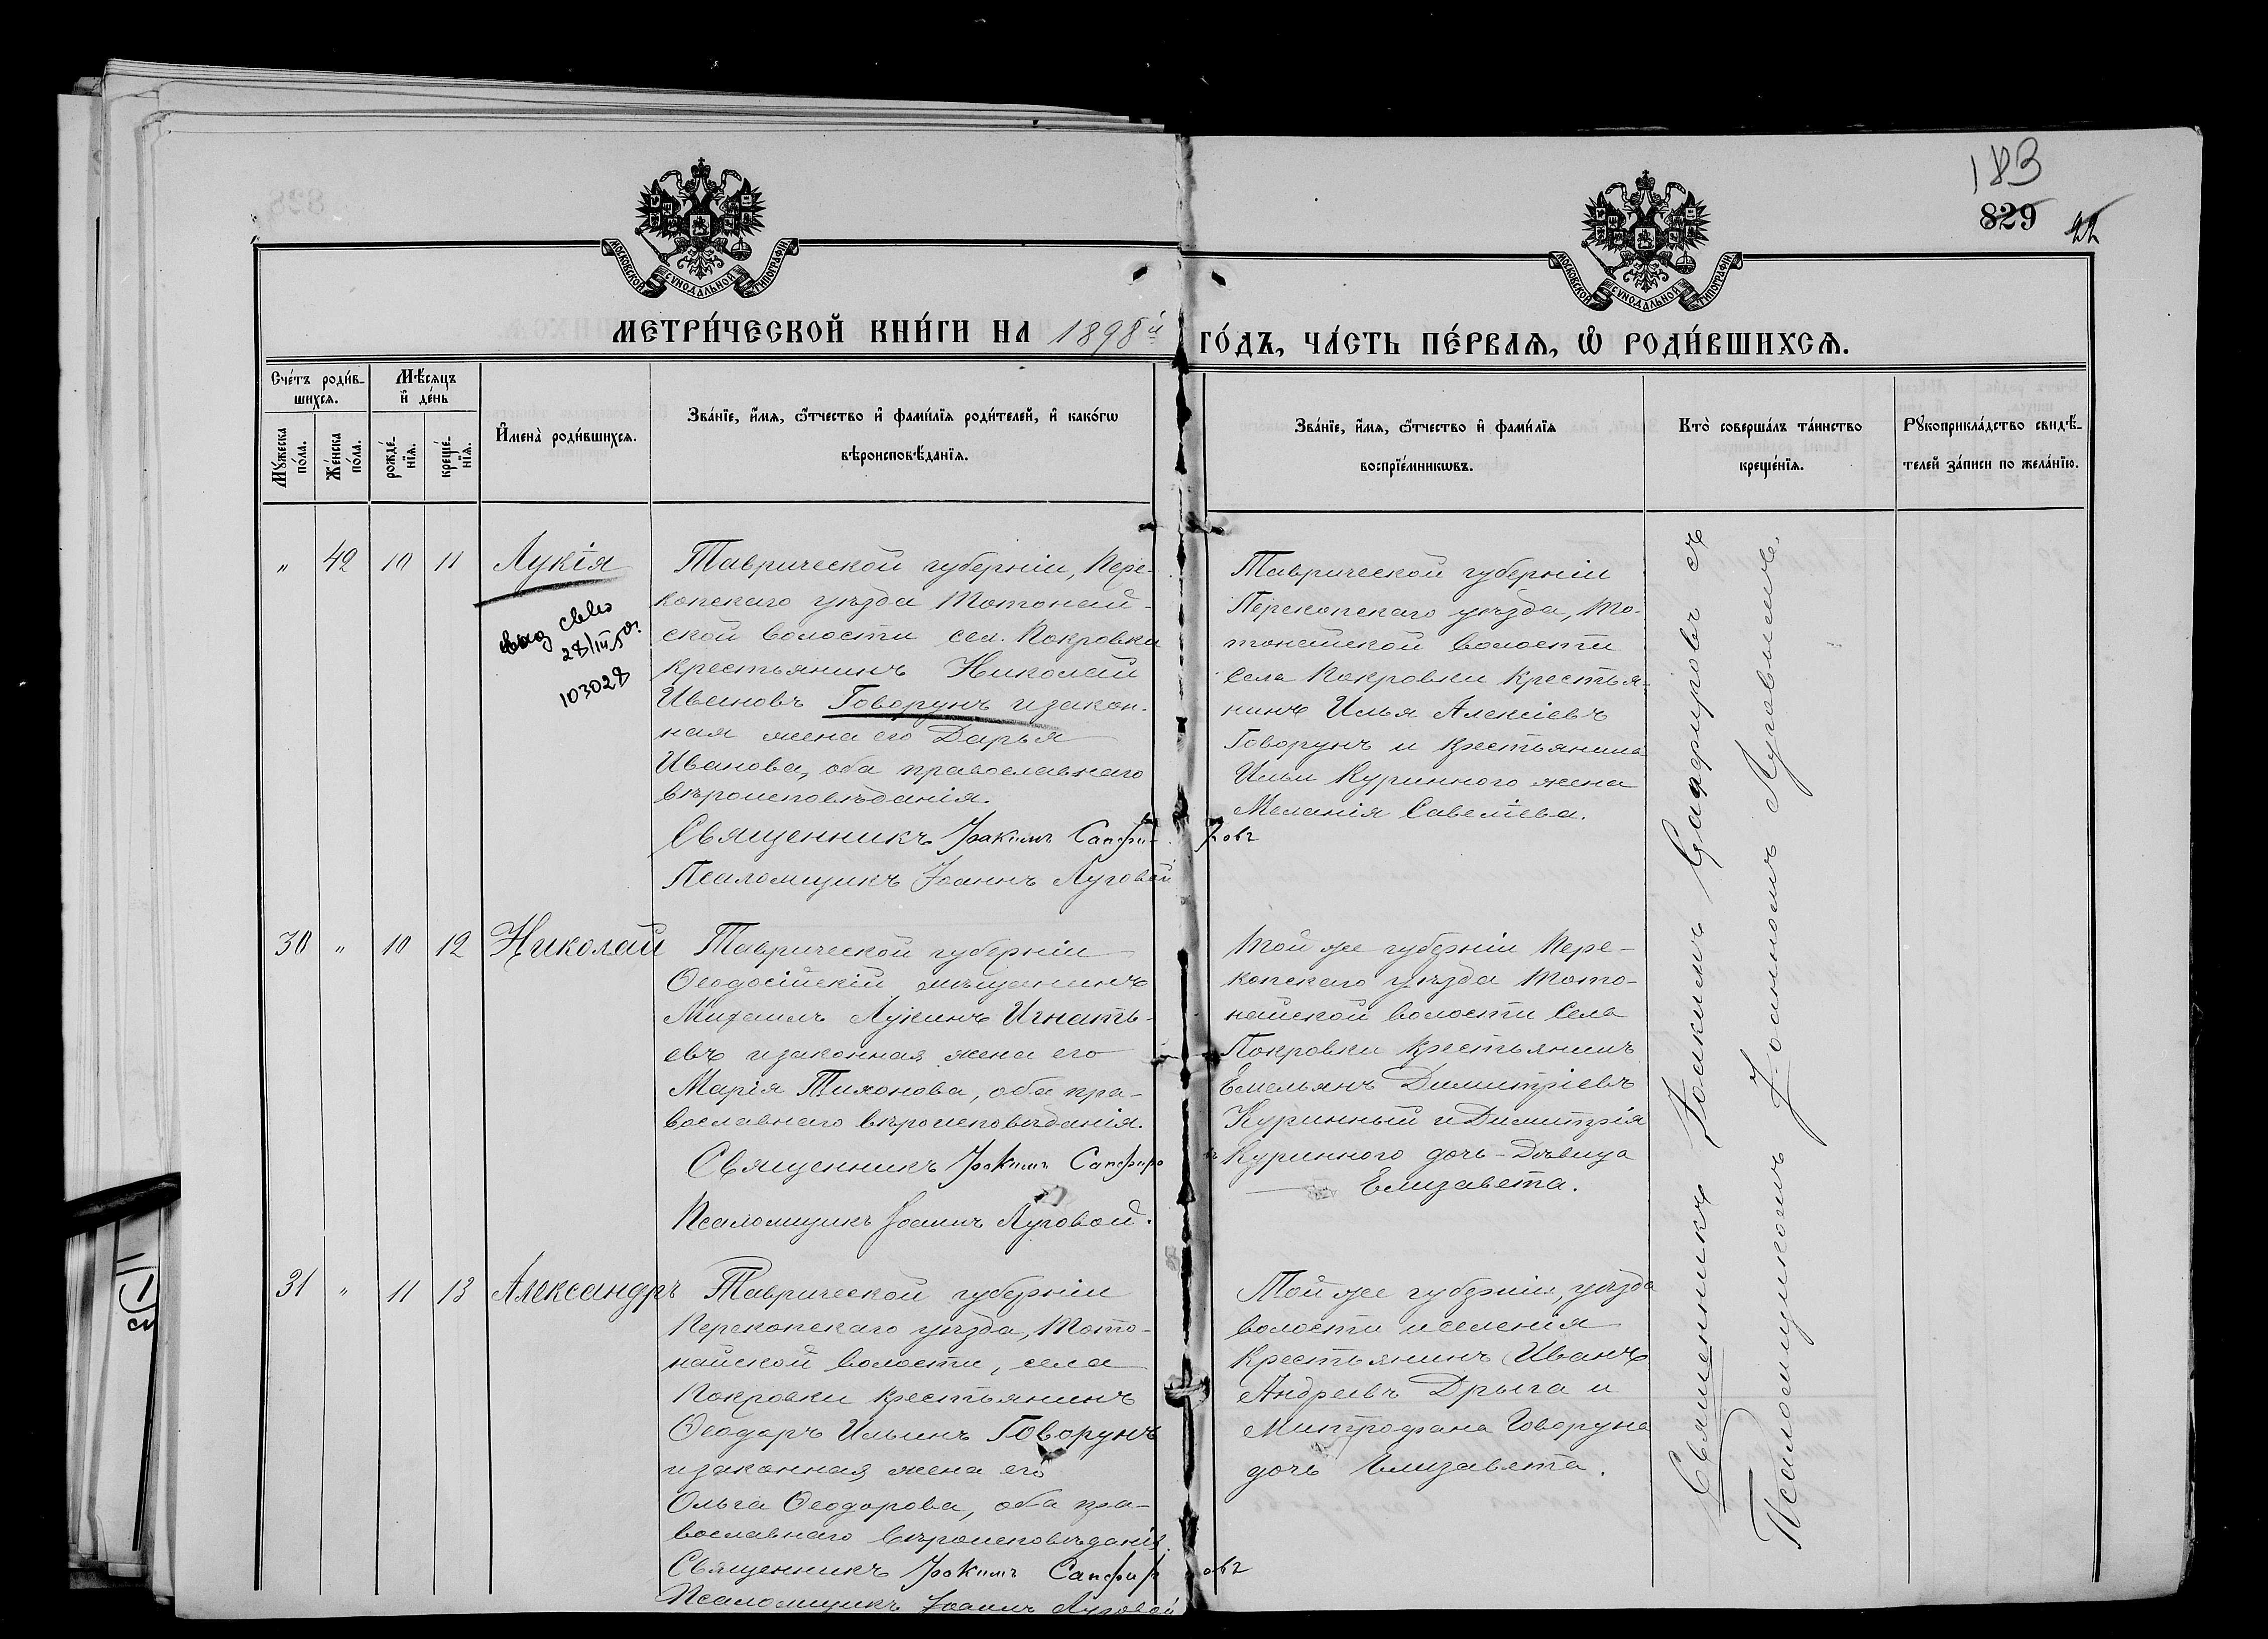 183
829 22
МОСКОВСКОЙ СѴНОДАЛЬНОЙ ТИПОГРАФІИ
МОСКОВСКОЙ СѴНОДАЛЬНОЙ ТИПОГРАФІИ
МЕТРИ́ЧЕСКОЙ КНИ́ГИ НА 1898й
ГО́ДЪ, ЧА́СТЬ ПЕ́РВАѦ, Ѽ РОДИ́ВШИХСѦ.
Сче́тъ роди́в-
шихсѧ.
Мꙋжеска по́ла.
Же́нска по́ла.
Мѣ́сѧцъ и҆ де́нь
рожде́-нїѧ.
креще́-нїѧ.
И҆мена̀ роди́вшихсѧ.
Зва́нїе, и҆́мѧ, ѻ҆́тчество и҆ фами́лїѧ роди́телей, и҆ како́гѡ
вѣроисповѣ́данїѧ.
Зва́нїе, и҆́мѧ, ѻ҆́тчество и҆ фами́лїѧ
воспрїе́мникѡвъ.
Кто̀ соверша́лъ та́инство
креще́нїѧ.
Рꙋкоприкла́дство свидѣ́-
телей за́писи по жела́нїю.
„ 42 10 11 Лукія
28/III
103028
Таврической губерніи, Пере-
копскаго уѣзда Тотонай-
ской волости сел. Покровки
крестьянинъ Николай
Ивановъ Говорунъ и закон-
ная жена его Дарья
Иванова, оба православнаго
вѣроисповѣданія.
Священникъ Іоакимъ Сапфировъ
Псаломщикъ Іоаннъ Луговой
Таврической губерніи
Перекопскаго уѣзда, То-
тонайской волости
села Покровки крестья-
нинъ Илья Алексіевъ
Говорунъ и крестьянина
Ильи Куринного жена
Меланія Савеліева.
30 „ 10 12 Николай
Таврической губерніи
Ѳеодосійскій мѣщанинъ
Михаилъ Лукинъ Игнать-
евъ и законная жена его
Марія Тихонова, оба пра-
вославнаго вѣроисповѣданія.
Священникъ Іоакимъ Сапфиро
Псаломщикъ Іоаннъ Луговой.
Той же губерніи Пере-
копскаго уѣзда Тото-
найской волости села
Покровки крестьянинъ
Емельянъ Димитріевъ
Куринный и Димитрія
Куринного дочь-дѣвица
Елизавета.
31 „ 11 13 Александръ
Таврической губерніи
Перекопскаго уѣзда, Тото-
найской волости, села
Покровки крестьянинъ
Ѳеодоръ Ильинъ Говорунъ
и законная жена его
Ольга Ѳеодорова, оба пра-
вославнаго вѣроисповѣданія.
Священникъ Іоакимъ Сапфировъ
Псаломщикъ Іоаннъ Луговой
Той же губерніи, уѣзда
волости и селенія
крестьянинъ Иванъ
Андреевъ Дрыга и
Митрофана Говоруна
дочь Елизавета.
Священникъ Іоакимъ Сапфировъ съ
Псаломщикомъ Іоанномъ Луговымъ.